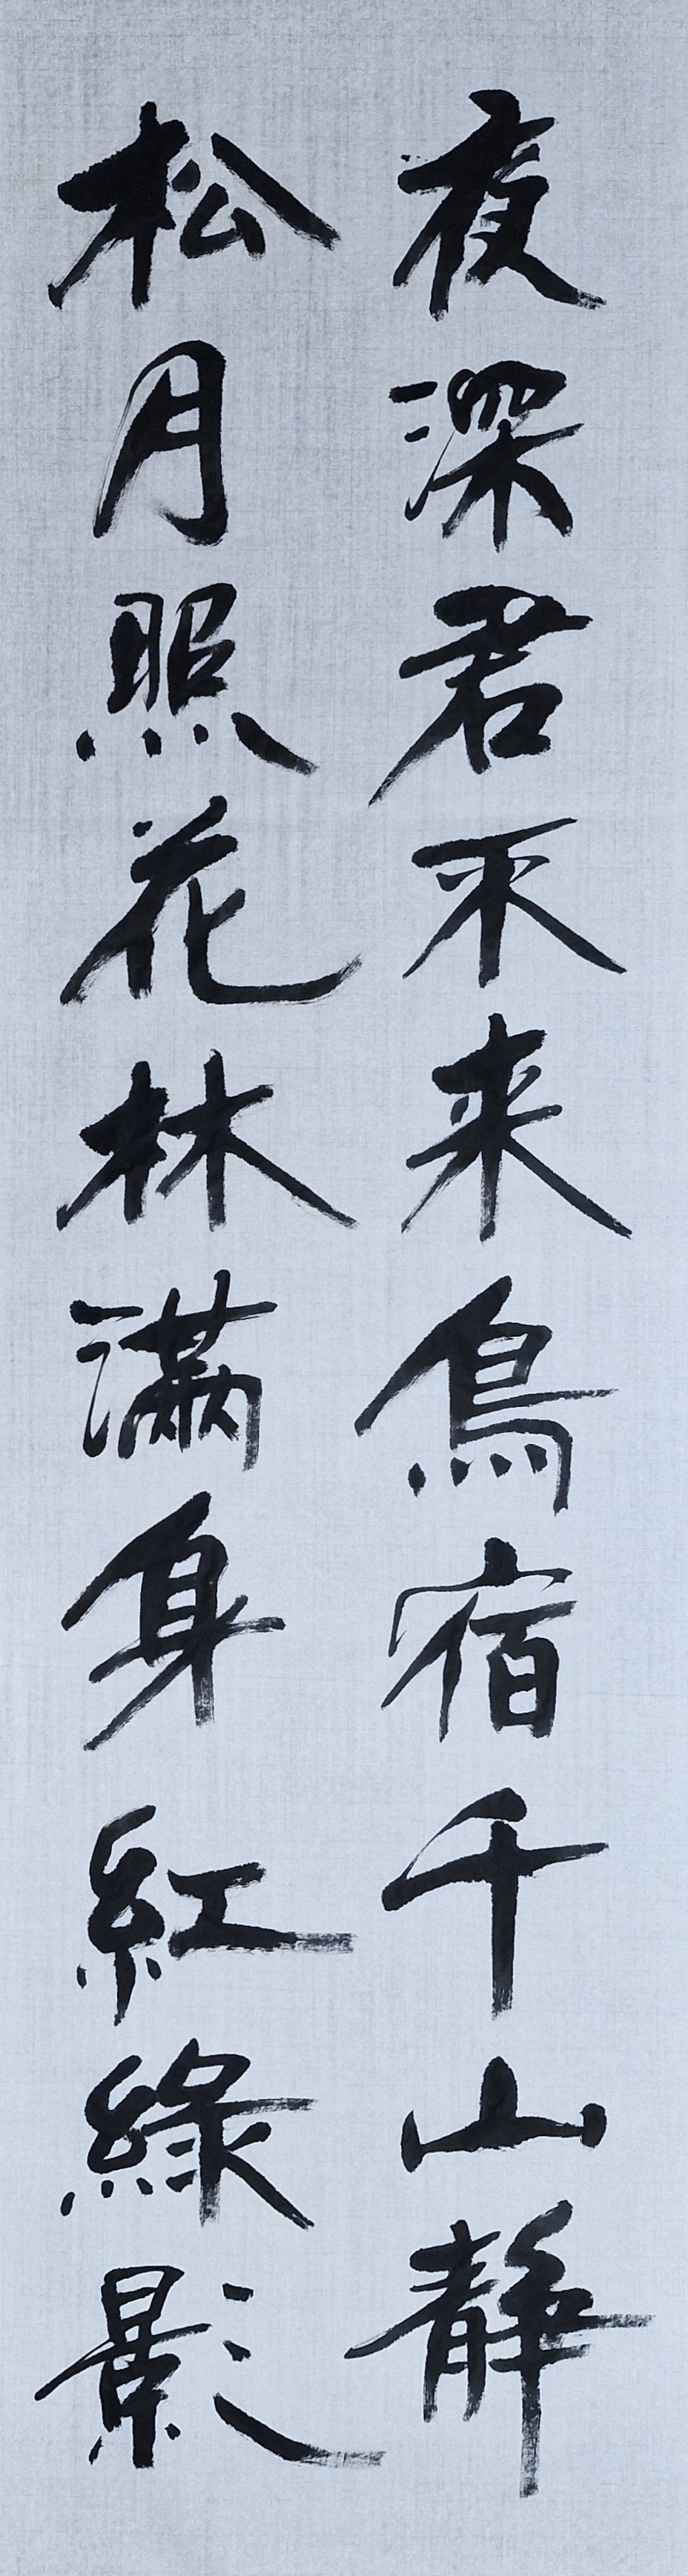 夜深君不来鳥宿千山靜
松月照花林滿身紅綠影